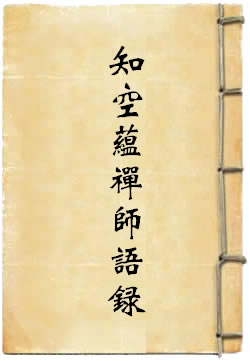 知空蘊禪師語錄